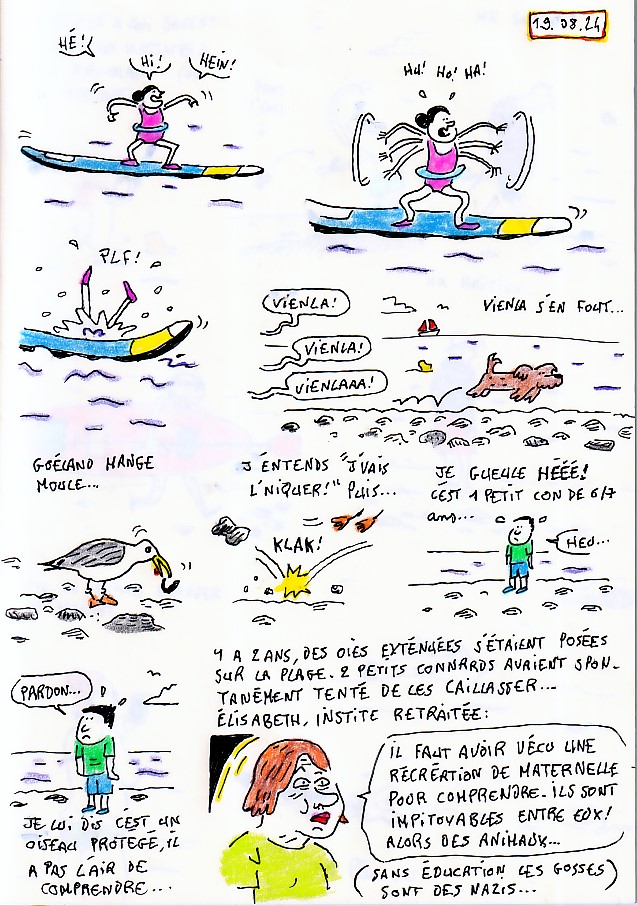 19.08.24
HÉ!
HI!
HEIN!
HU! HO! HA!
PLF!
VIENLA!
VIENLA!
VIENLAAA!
VIENLA S'EN FOUT...
GOÉLAND MANGE
MOULE...
J'ENTENDS "J'VAIS
L'NIQUER!" PUIS...
KLAK!
JE GUEULE HÉÉÉ!
C'EST 1 PETIT CON DE 6/7
ans...
HEU...
PARDON...
JE LUI DIS C'EST UN
OISEAU PROTÉGÉ, IL
A PAS L'AIR DE
COMPRENDRE...
Y A 2 ANS, DES OIES EXTÉNUÉES S'ÉTAIENT POSÉES
SUR LA PLAGE. 2 PETITS CONNARDS AVAIENT SPON-
TANÉMENT TENTÉ DE LES CAILLASSER...
ÉLISABETH, INSTITE RETRAITÉE:
IL FAUT AVOIR VÉCU UNE
RÉCRÉATION DE MATERNELLE
POUR COMPRENDRE. ILS SONT
IMPITOYABLES ENTRE EUX!
ALORS DES ANIMAUX...
(SANS ÉDUCATION LES GOSSES)
SONT DES NAZIS...